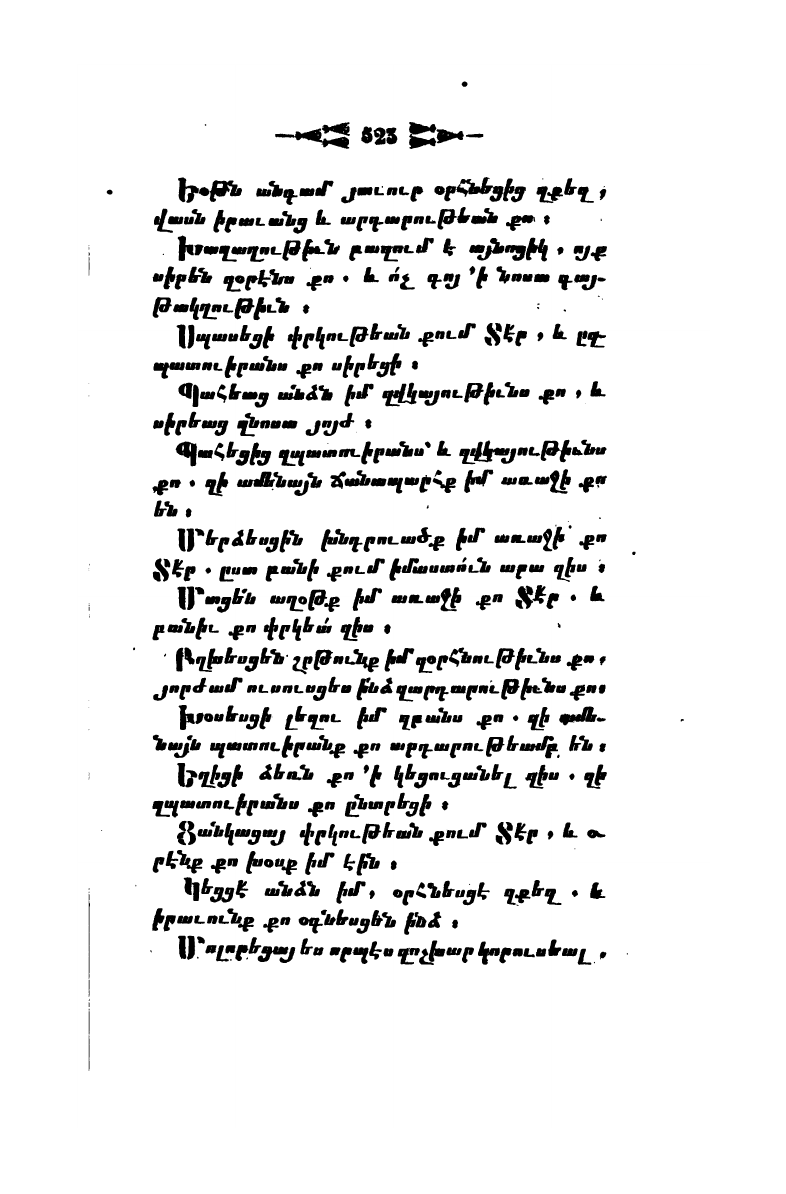 523
Եօթն անգամ յաւուր օրհնեցից զքեզ,
վասն իրաւանց և արդարութեան քո։
Խաղաղութիւն բազում է այնոցիկ, ոյք
սիրեն զօրէնս քո. և ո՛չ գոյ ՚ի նոսա գայ-
թակղութիւն։
Սպասեցի փրկութեան քում Տէր, և ըզ-
պատուիրանս քո սիրեցի։
Պահեաց անձն իմ զվկայութիւնս քո, և
սիրեաց զնոսա յոյժ։
Պահեցից զպատուիրանս՝ և զվկայութիւնս
քո. զի ամենայն ճանապարհք իմ առաջի քո
են։
Մերձեսցին խնդրուածք իմ առաջի քո
Տէր. ըստ բանի քում իմաստո՛ւն արա զիս։
Մտցե՛ն աղօթք իմ առաջի քո Տէր. և
բանիւ քո փրկեա՛ զիս։
Բղխեսցեն շրթունք իմ զօրհնութիւնս քո,
յորժամ ուսուսցես ինձ զարդարութիւնս քո։
Խօսեսցի լեզու իմ զբանս քո. զի ամե-
նայն պատուիրանք քո արդարութեամբ են։
Եղիցի ձեռն քո ՚ի կեցուցանել զիս. զի
զպատուիրանս քո ընտրեցի։
Ցանկացայ փրկութեան քում Տէր, և օ-
րէնք քո խօսք իմ էին։
Կեցցէ անձն իմ, օրհնեսցէ զքեզ. և
իրաւունք քո օգնեսցեն ինձ։
Մոլորեցայ ես որպէս զոչխար կորուսեալ,